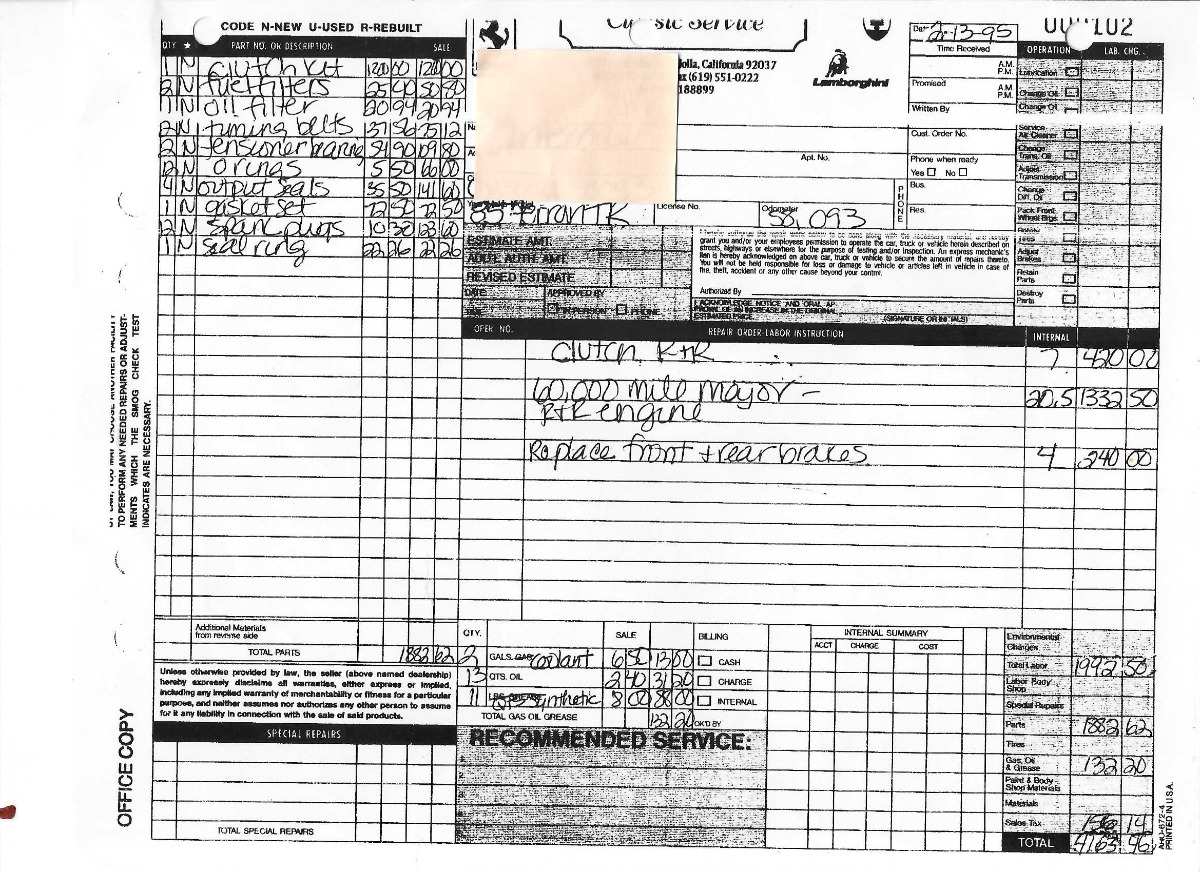 CODE N-NEW U-USED R-REBUILT
QTY ★ PART NO. OR DESCRIPTION SALE
1 N Clutch kit 1200 00 1200 00
2 N fuel filters 25 40 50 80
1 N oil filter 20 94 20 94
2 N timing belts 37 56 75 12
2 N tensioner bearing 54 90 109 80
12 N orings 5 50 66 00
4 N output seals 35 50 141 60
1 N gasket set 72 50 72 50
12 N spark plugs 10 30 123 60
1 N seal ring 22 26 22 26
TO PERFORM ANY NEEDED REPAIRS OR ADJUST-
MENTS WHICH THE SMOG CHECK TEST
INDICATES ARE NECESSARY.
OFFICE COPY
Additional Materials
from reverse side
TOTAL PARTS 1882 62
Unless otherwise provided by law, the seller (above named dealership)
hereby expressly disclaims all warranties, either express or implied,
including any implied warranty of merchantability or fitness for a particular
purpose, and neither assumes nor authorizes any other person to assume
for it any liability in connection with the sale of said products.
SPECIAL REPAIRS
TOTAL SPECIAL REPAIRS
Classic Service
Jolla, California 92037
(619) 551-0222
188899
Lamborghini
Date 2-13-95
Time Received
A.M.
P.M.
Promised
A.M.
P.M.
Written By
Cust. Order No.
Apt. No.
Phone when ready
Yes No
PHONE
Bus.
Res.
85 Ferrari TR
License No.
Odometer 38,093
ESTIMATE AMT.
ADD'L AUTH. AMT.
REVISED ESTIMATE
DATE
APPROVED BY
TIME
IN PERSON PHONE
grant you and/or your employees permission to operate the car, truck or vehicle herein described on
streets, highways or elsewhere for the purpose of testing and/or inspection. An express mechanic's
lien is hereby acknowledged on above car, truck or vehicle to secure the amount of repairs thereto.
You will not be held responsible for loss or damage to vehicle or articles left in vehicle in case of
fire, theft, accident or any other cause beyond your control.
Authorized By
I ACKNOWLEDGE NOTICE AND ORAL AP-
PROVAL OF AN INCREASE IN THE ORIGINAL
ESTIMATED PRICE.
(SIGNATURE OR INITIALS)
OPERATION LAB. CHG.
Lubrication
Change Oil
Change Oil
Service
Air Cleaner
Change
Trans. Oil
Adjust
Transmission
Change
Diff. Oil
Pack Front
Wheel Brgs.
Rotate
Tires
Adjust
Brakes
Retain
Parts
Destroy
Parts
OPER. NO. REPAIR ORDER-LABOR INSTRUCTION INTERNAL
Clutch R+R 7 420 00
60,000 mile major - 20.5 1332 50
R+R engine
Replace front + rear brakes 4 240 00
QTY. SALE BILLING
2 GALS. GAS coolant 6 50 13 00 CASH
13 QTS. OIL 2 40 31 20 CHARGE
11 LBS. GREASE QTS synthetic 8 00 88 00 INTERNAL
TOTAL GAS OIL GREASE 132 20 OK'D BY
RECOMMENDED SERVICE:
INTERNAL SUMMARY
ACCT CHARGE COST
Environmental
Charges
Total Labor 1992 50
Labor Body
Shop
Special Repairs
Parts 1882 62
Tires
Gas, Oil
& Grease 132 20
Paint & Body
Shop Materials
Materials
Sales Tax 156 14
TOTAL 4163 46
PRINTED IN U.S.A.